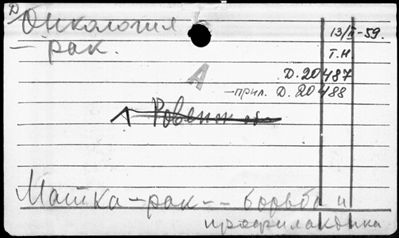 Д
Онкология
- рак.
13/II-59.
Т.Н.
Д.20487
А
-прил. Д.20488
Матка - рак - - борьба и
профилактика